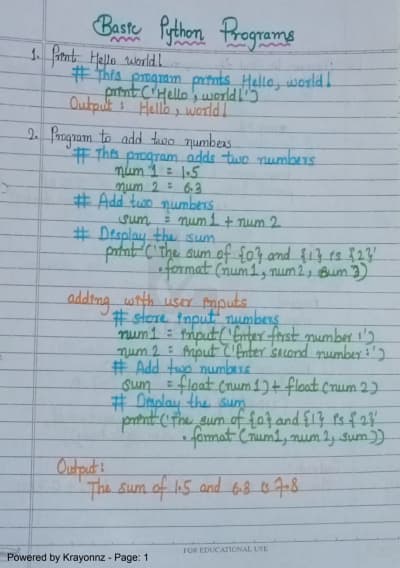 Basic Python Programs
1. Print Hello world!
# This program prints Hello, world!
print('Hello, world!')
Output : Hello, world!
2. Program to add two numbers
# This program adds two numbers
num 1 = 1.5
num 2 = 6.3
# Add two numbers
sum = num1 + num 2
# Display the sum
print('The sum of {0} and {1} is {2}'
.format (num1, num2, sum))
adding with user inputs
# store input numbers
num1 = input('Enter first number :')
num 2 = input ('Enter second number :')
# Add two numbers
sum = float(num1) + float(num 2)
# Display the sum
print('The sum of {0} and {1} is {2}'
.format (num1, num2, sum))
Output :
The sum of 1.5 and 6.3 is 7.8
FOR EDUCATIONAL USE
Powered by Krayonnz - Page: 1